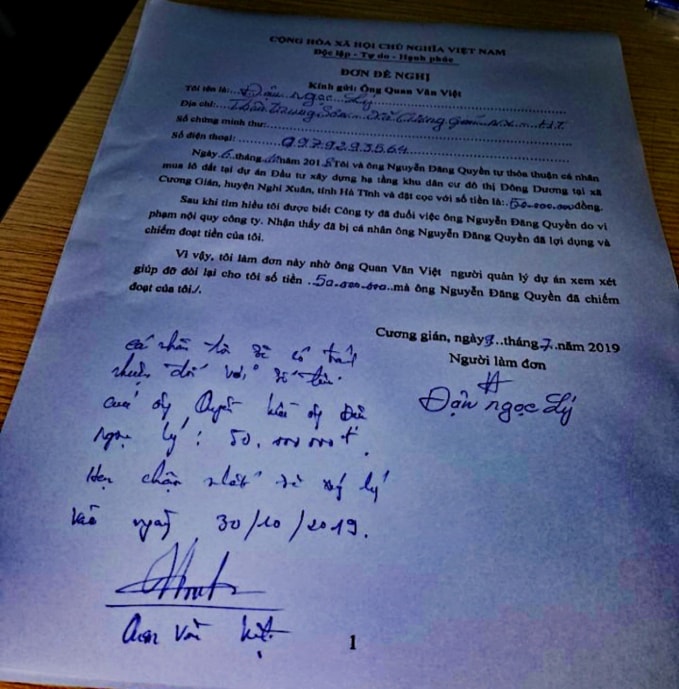 CỘNG HÒA XÃ HỘI CHỦ NGHĨA VIỆT NAM
Độc lập - Tự do - Hạnh phúc
ĐƠN ĐỀ NGHỊ
Kính gửi: Ông Quan Văn Việt
Tôi tên là: Đậu ngọc Lý
Địa chỉ: Thôn Trung Sơn - Xã Cương Gián
Số chứng minh thư:
Số điện thoại: 0979293564
Ngày 6 tháng năm 2018 Tôi và ông Nguyễn Đăng Quyền tự thỏa thuận cá nhân
mua lô đất tại dự án Đầu tư xây dựng hạ tầng khu dân cư đô thị Đông Dương tại xã
Cương Gián, huyện Nghi Xuân, tỉnh Hà Tĩnh và đặt cọc với số tiền là: 50.000.000 đồng.
Sau khi tìm hiểu tôi được biết Công ty đã đuổi việc ông Nguyễn Đăng Quyền do vi
phạm nội quy công ty. Nhận thấy đã bị cá nhân ông Nguyễn Đăng Quyền đã lợi dụng và
chiếm đoạt tiền của tôi.
Vì vậy, tôi làm đơn này nhờ ông Quan Văn Việt người quản lý dự án xem xét
giúp đỡ đòi lại cho tôi số tiền 50.000.000 mà ông Nguyễn Đăng Quyền đã chiếm
đoạt của tôi./.
Cương gián, ngày 9 tháng 7 năm 2019
Người làm đơn
Đậu ngọc Lý
cá nhân tôi sẽ có trách
nhiệm đối với số tiền
của ông Quyền với ông Đậu
Ngọc Lý: 50.000.000đ.
Hẹn chậm nhất sẽ xử lý
vào ngày 30/10/2019.
Quan Văn Việt
1